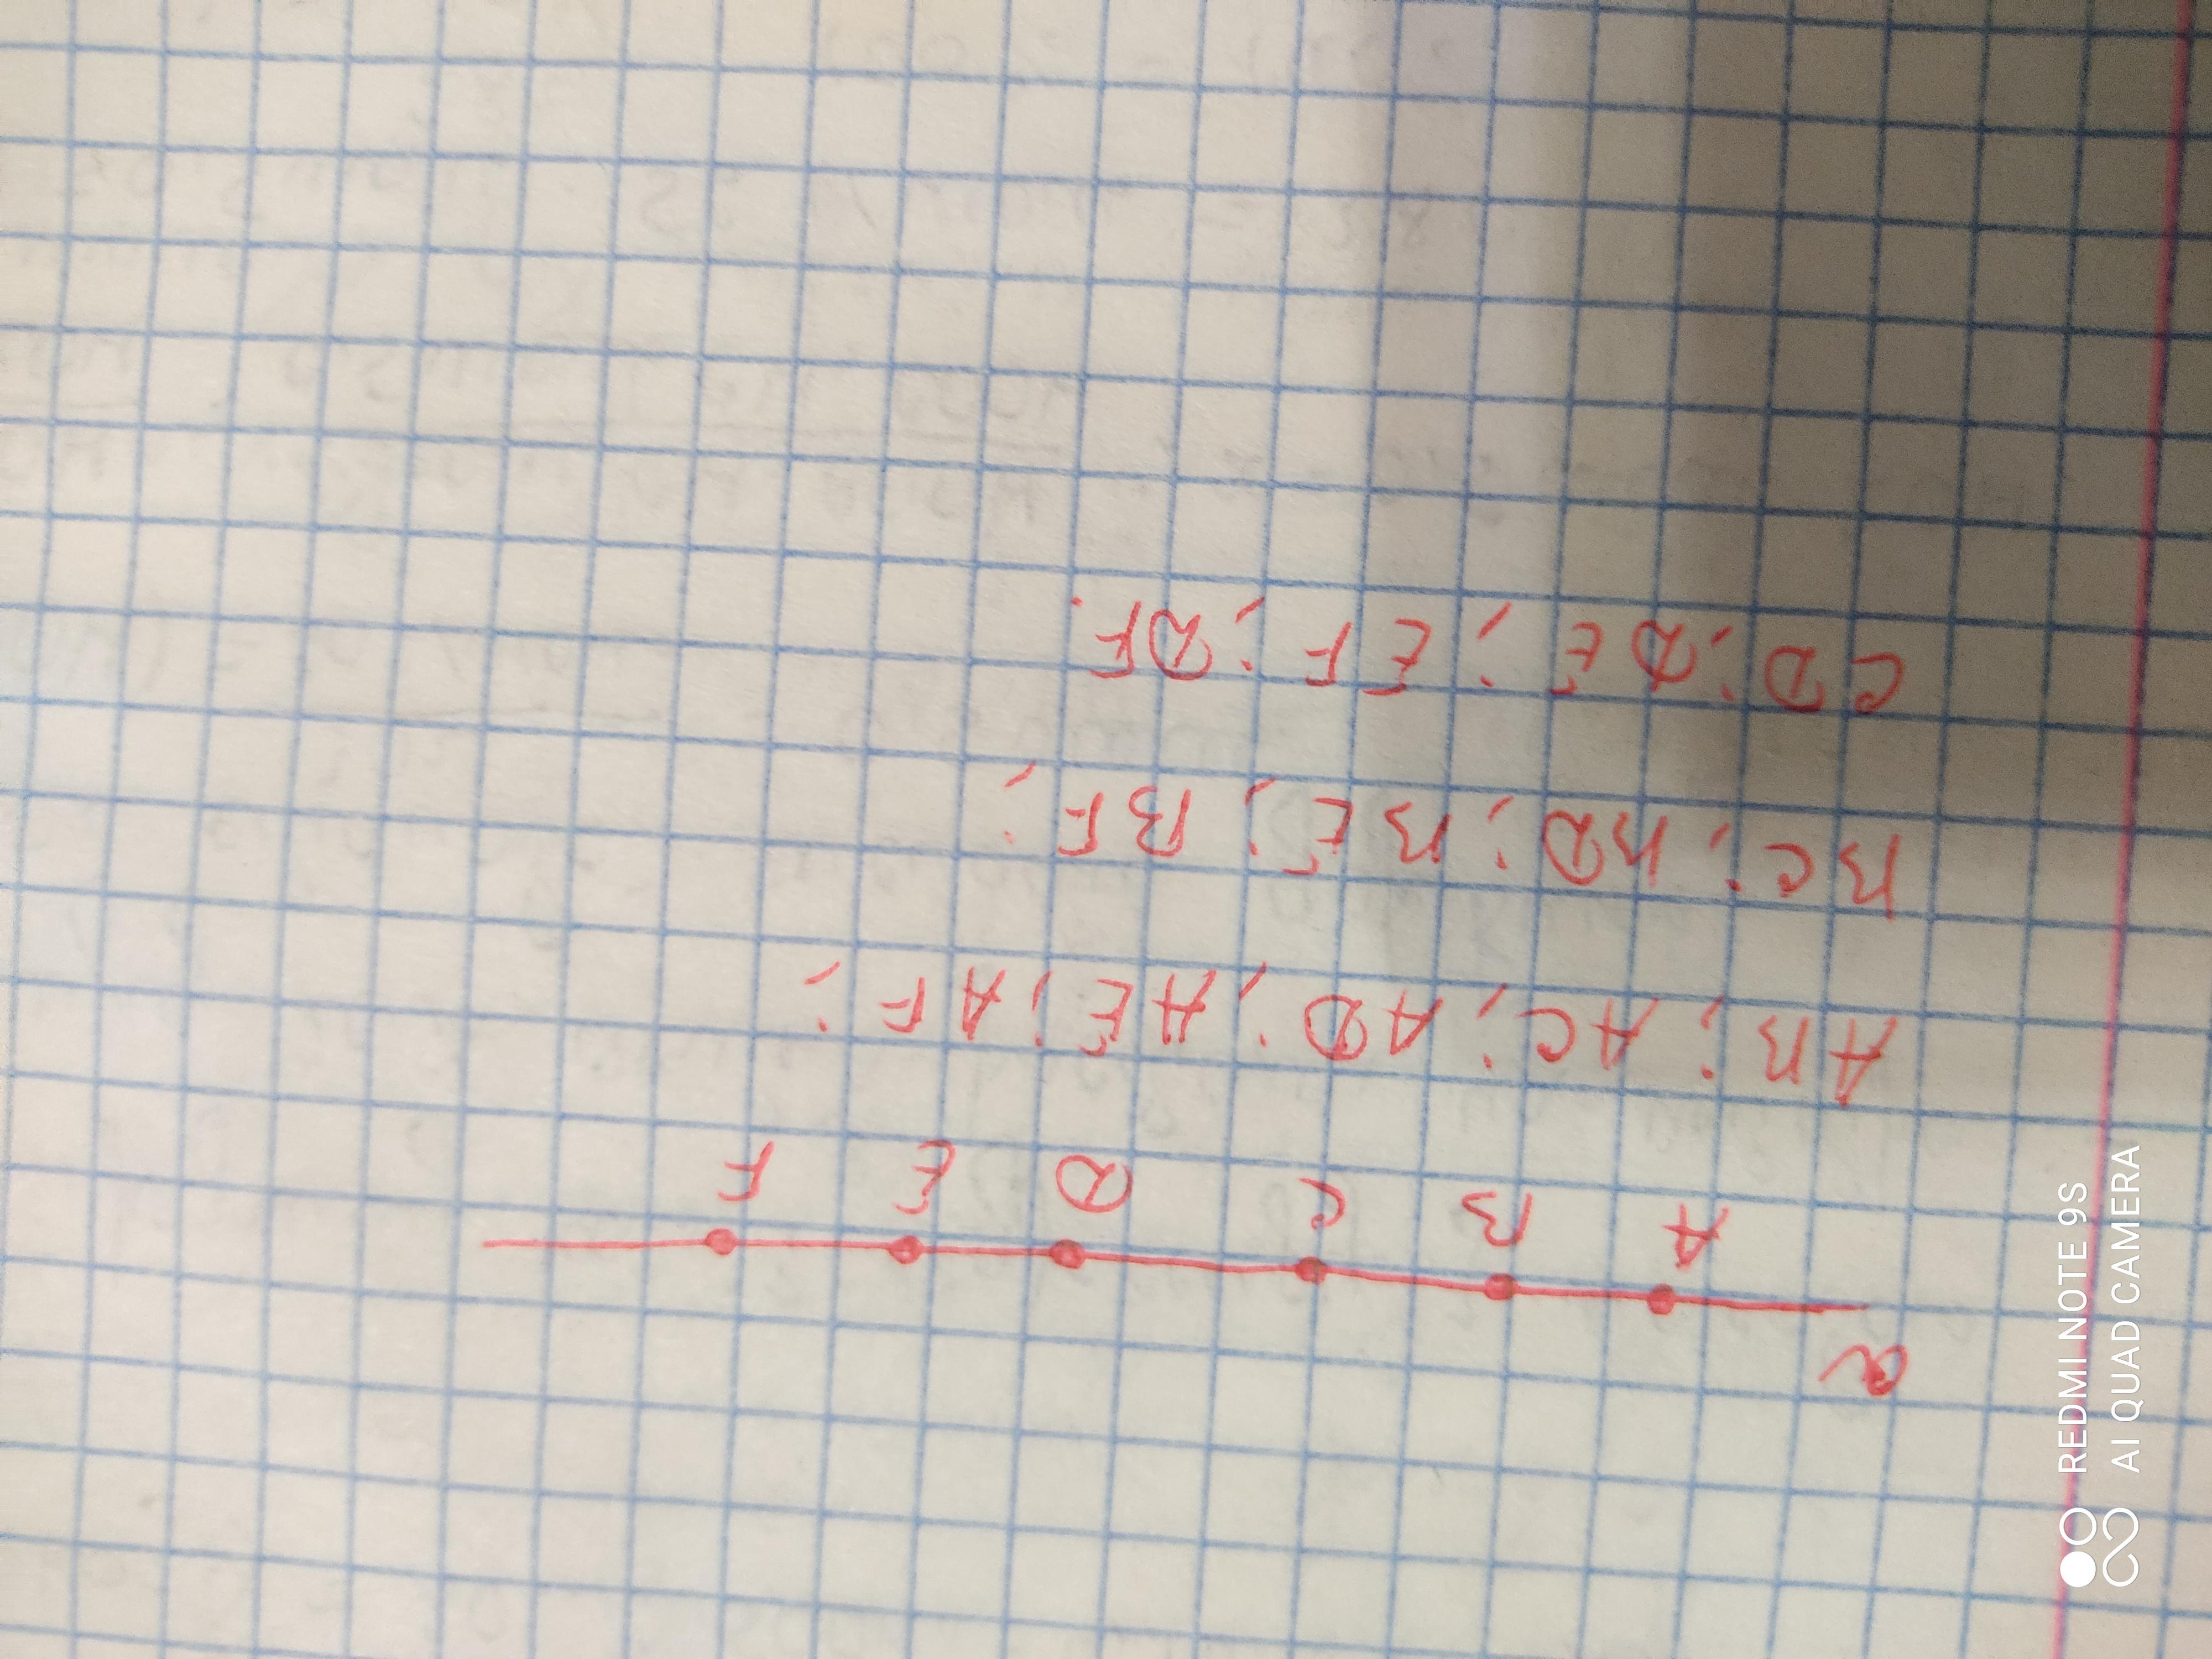 a
A B C D E F
AB; AC; AD; AE; AF;
BC; BD; BE; BF;
CD; DE; EF; DF.
REDMI NOTE 9S
AI QUAD CAMERA